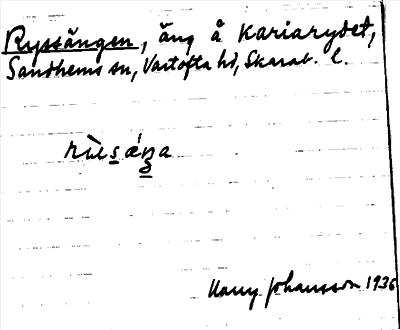 Ryssängen, äng å Kariarydet,
Sandhems sn, Vartofta hd, Skarab. l.
Harry Johansson 1936